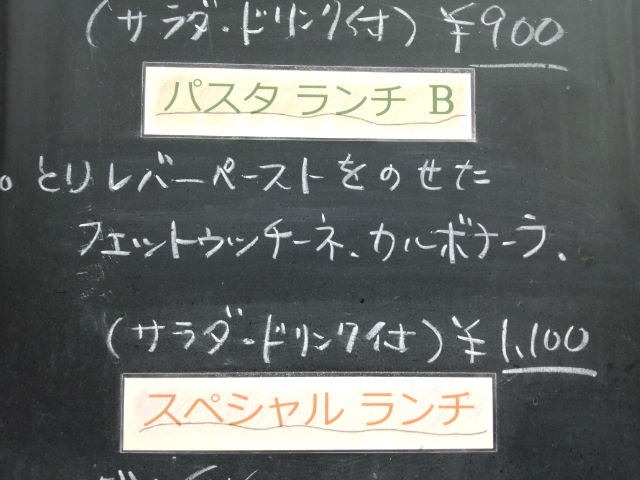 (サラダ・ドリンク付) ¥900
パスタ ランチ B
。とりレバーペーストをのせた
フェットゥッチーネ、カルボナーラ、
(サラダ・ドリンク付) ¥1,100
スペシャル ランチ